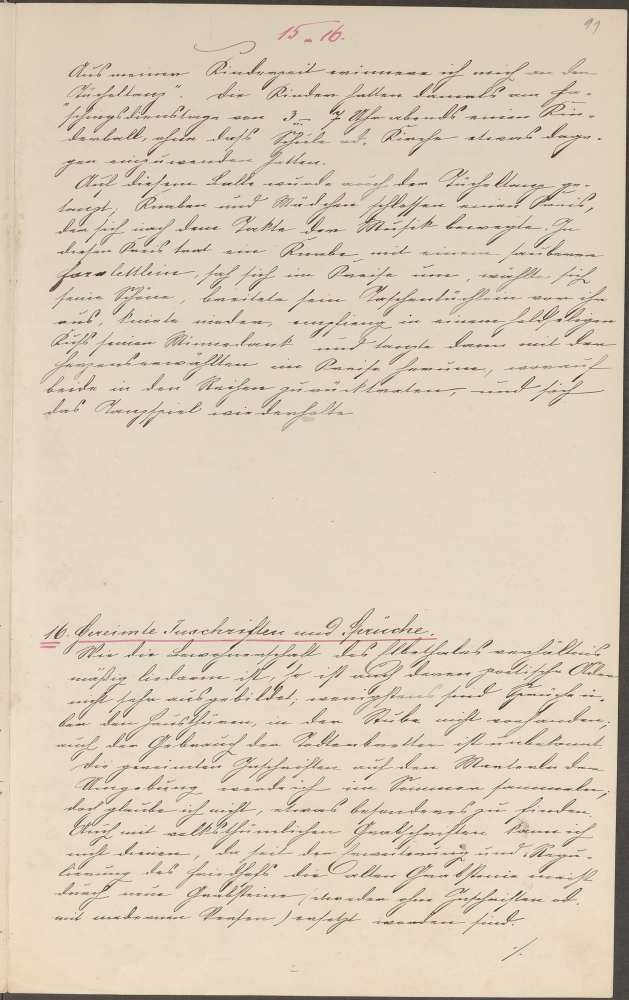 91
15-16.
Aus meiner Kinderzeit erinnere ich mich an den
"Tücheltanz". Die Kinder hatten damals am Fa-
schingsdienstage von 3-7 Uhr abends einen Kin-
derball, ohne daß Schule od. Kirche etwas dage-
gen einzuwenden hatten.
Auf diesem Balle wurde auch der Tücheltanz ge-
tanzt; Knaben und Mädchen schlossen einen Kreis,
der sich nach dem Takte der Musik bewegte. In
diesen Kreis trat ein Knabe mit einem sauberen
sah sich im Kreise um, wählte sich
seine Schöne, breitete sein Taschentüchlein vor ihr
aus, kniete nieder, empfieng in einem holdseligen
Kuß seinen Minnedank und tanzte dann mit der
Herzenserwählten im Kreise herum, worauf
beide in den Reihen zurücktraten, und sich
das Tanzspiel wiederholte
16. Gereimte Inschriften und Sprüche.
Wie die Bewohnerschaft des verhältnis
mäßig liederarm ist, so ist auch deren poetische Ader
nicht sehr ausgebildet; wenigstens sind Sprüche ü-
ber den Hausthüren, in der Stube nicht vorhanden;
auch der Gebrauch der Todtenbretter ist unbekannt.
Die gereimten Inschriften auf den Marterln der
Umgebung werde ich im Sommer sammeln,
doch glaube ich nicht, etwas besonderes zu finden.
Auch mit volksthümlichen Grabschriften kann ich
nicht dienen, da seit der Erweiterung und Regu-
lierung des Friedhofs die alten Grabsteine meist
durch neue Grabsteine (entweder ohne Inschriften od.
mit modernen Versen) ersetzt worden sind.
./.